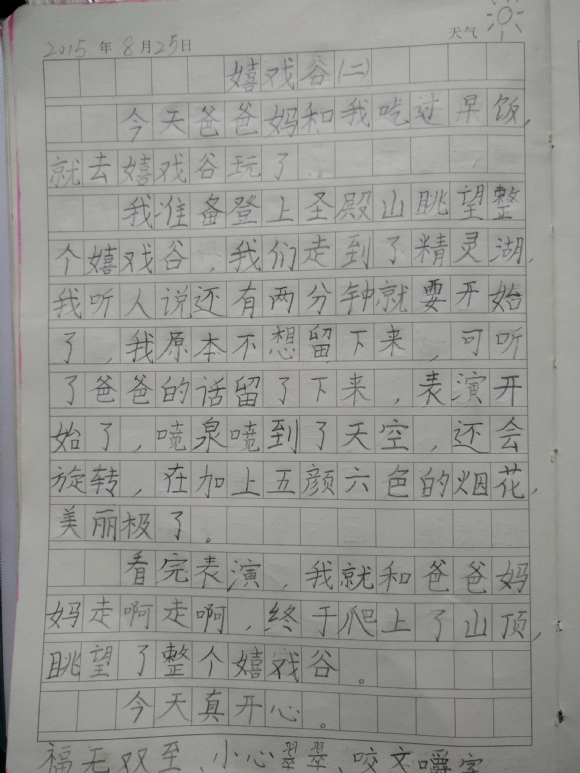 2015 年 8 月 25 日 天气
嬉戏谷(二)
今天爸爸妈和我吃过早饭,
就去嬉戏谷玩了
我准备登上圣殿山眺望整
个嬉戏谷,我们走到了精灵湖,
我听人说还有两分钟就要开始
了,我原本不想留下来,可听
了爸爸的话留了下来,表演开
始了,喷泉喷到了天空,还会
旋转,在加上五颜六色的烟花,
美丽极了。
看完表演,我就和爸爸妈
妈走啊走啊,终于爬上了山顶,
眺望了整个嬉戏谷。
今天真开心。
福无双至、小心翠翠、咬文嚼字